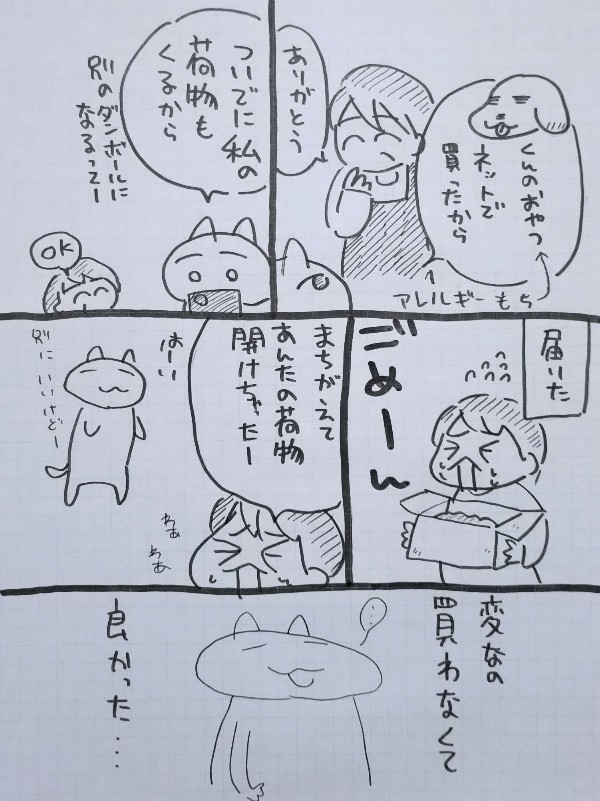 くんのおやつ
ネットで
買ったから
アレルギーもち
ありがとう
ついでに私の
荷物も
くるから
別のダンボールに
なるってー
OK
届いた
ごめーん
まちがえて
あんたの荷物
開けちゃったー
わぁ
わぁ
はーい
別にいいけどー
変なの
買わなくて
良かった...